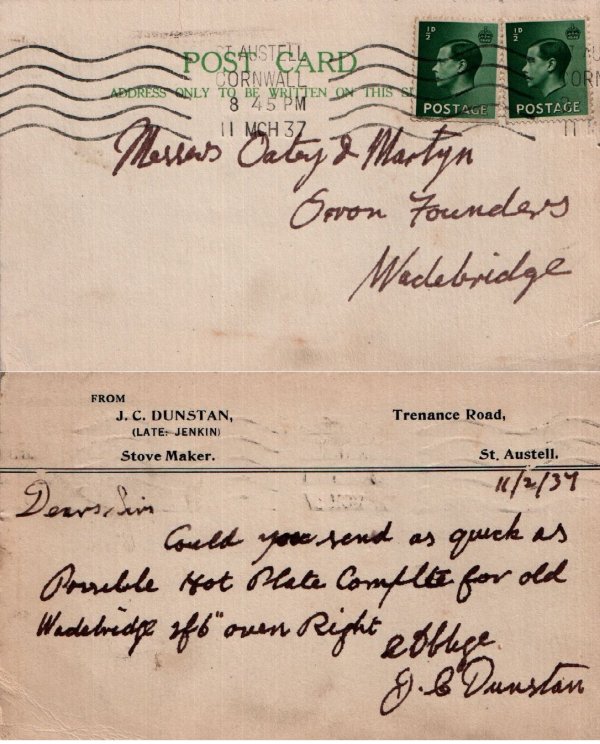 ST AUSTELL
CORNWALL
8 45 PM
11 MCH 37
POST CARD
ADDRESS ONLY TO BE WRITTEN ON THIS SI
½D
POSTAGE
½D
POSTAGE
Messers Oatey & Martyn
Founders
Wadebridge
FROM
J. C. DUNSTAN,
(LATE: JENKIN)
Stove Maker.
Trenance Road,
St. Austell.
11/2/37
Dears Sirs
Could you send as quick as
Possible Hot Plate Complte for old
Wadebridge 2f6" oven Right
&
J. C Dunstan